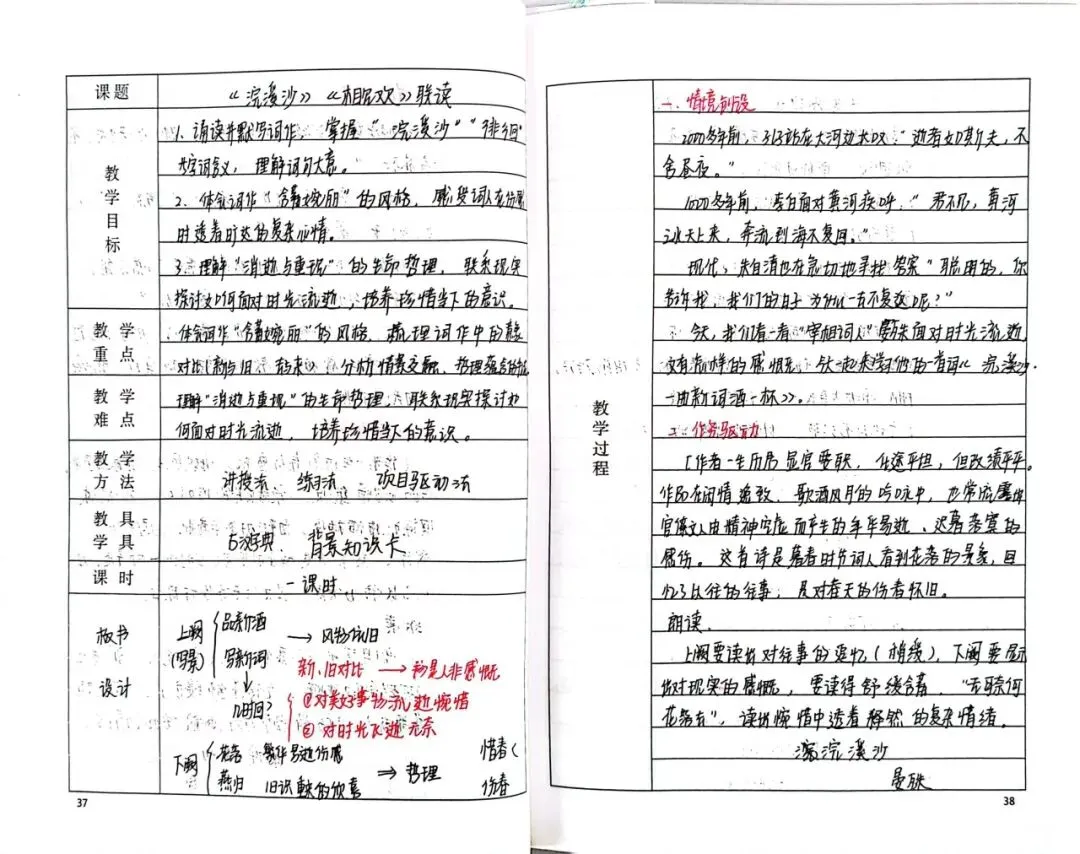 课题
《浣溪沙》《相见欢》联读
教学目标
1、诵读并默写词作，掌握“浣溪沙”“徘徊”
等字词含义，理解词句大意。
2、体会词作“含蓄婉丽”的风格，感受词人在伤感
时透着旷达的复杂心情。
3、理解“消逝与重现”的生命哲理，联系现实
探讨如何面对时光流逝，培养珍惜当下的意识。
教学重点
体会词作“含蓄婉丽”的风格，梳理词作中的
对比（新与旧、去来），分析情景交融、哲理蕴含的
教学难点
理解“消逝与重现”的生命哲理，联系现实探讨如
何面对时光流逝，培养珍惜当下的意识。
教学方法
讲授法、练习法、项目驱动法
教具学具
古汉语词典、背景知识卡
课时
一课时
板书设计
上阕(写景)
品新酒
写新词
→风物依旧
新、旧对比→物是人非感慨
几时回?
①对美好事物流逝惋惜
②对时光飞逝无奈
下阕
花落 繁华易逝伤感
燕归 旧识重来的欣喜
⇒哲理
惜春(
伤春
37
教学过程
一、情境创设
2000多年前，孔子站在大河边大叹：“逝者如斯夫，不
舍昼夜。”
1000多年前，李白面对黄河疾呼：“君不见，黄河
之水天上来，奔流到海不复回。”
现代，朱自清也在急切地寻找答案“聪明的，你
告诉我，我们的日子为什么一去不复返呢？”
今天，我们看一看“宰相词人”晏殊面对时光流逝
又有怎样的感慨。今天一起来学习他的一首词《浣溪沙·
一曲新词酒一杯》。
二、任务驱动
作者一生历居显官要职，仕途平坦，但政绩平平。
作品在闲情逸致、歌酒风月的吟咏中，也常流露
官僚文人由精神空虚而产生的年华易逝、迟暮落寞的
感伤。这首诗是暮春时节词人看到花落的景象，回
忆了以往的往事，是对春天的伤春怀旧。
朗读。
上阕要读出对往事的追忆（稍缓），下阕要显示
出对现实的感慨，要读得舒缓含蓄，“无可奈何
花落去”，读出惋惜中透着释然的复杂情绪。
浣溪沙
晏殊
38